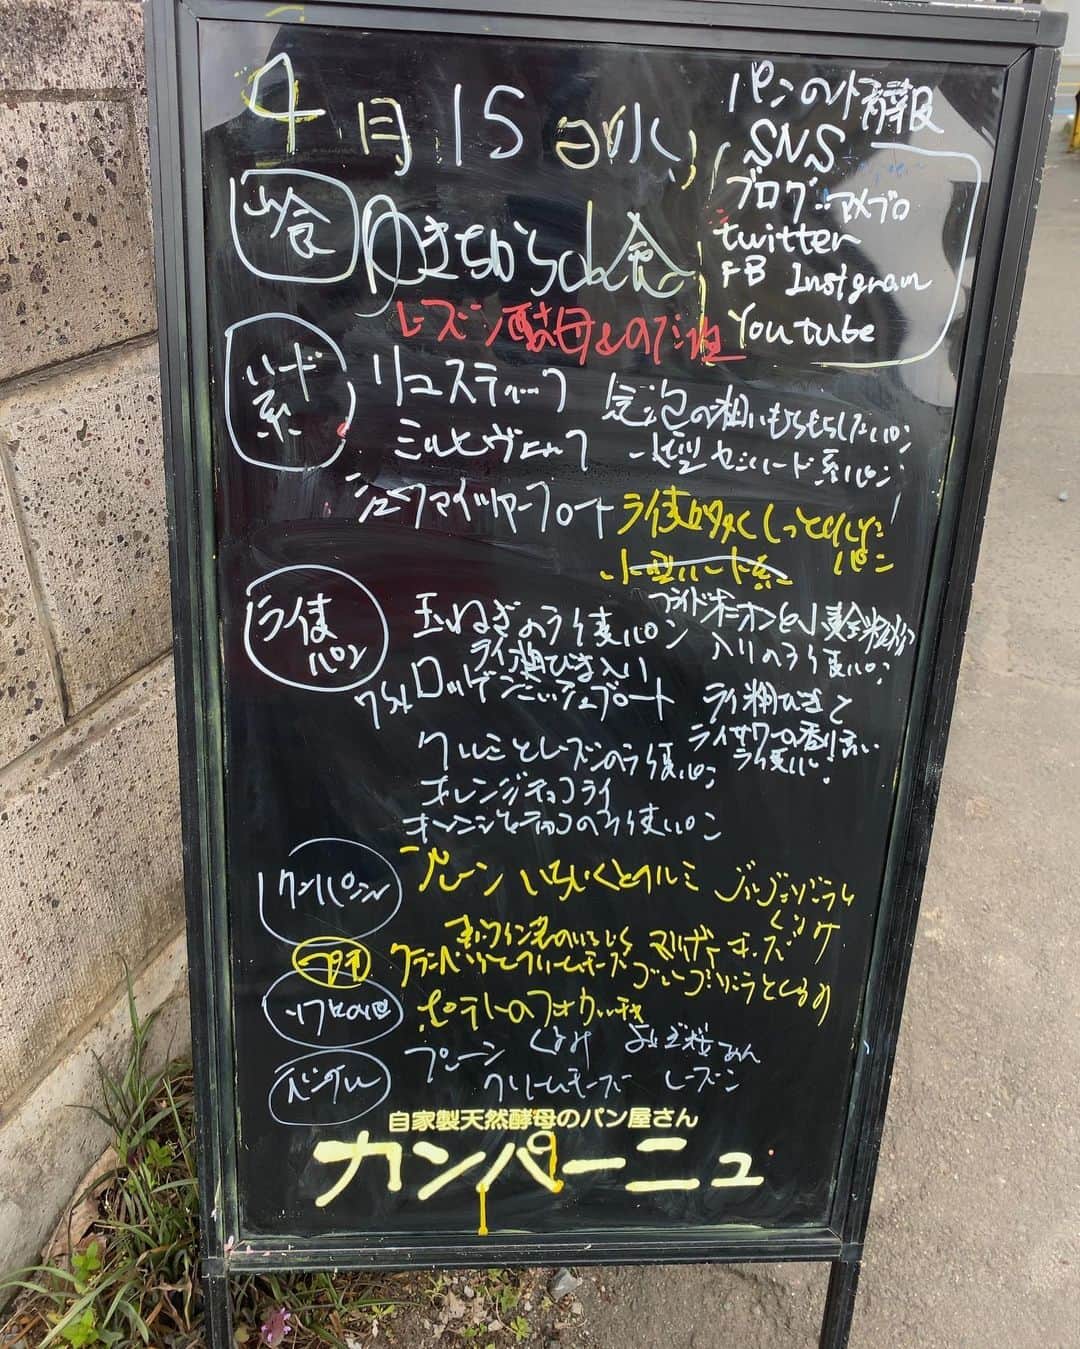 4月15日(水)
パンの情報
SNS
ブログ:アメブロ
twitter
FB Instgram
Youtube
山食
ゆきちから山食
レーズン酵母
ハード系
リュスティック 気泡の粗いもちもちしたパン
ミルヒヴェック 小型セミハード系パン
シュヴァイツァーブロート ライ麦が多くしっとりした
パン
小型ハード系
ライ麦パン
玉ねぎのライ麦パン
フライドオニオンと小麦全粒粉
入りのライ麦パン
ライ粗びき入り
ロッゲンミッシュブロート
ライ粗びきと
ライサワーの香り高い
ライ麦パン
クルミとレーズンのライ麦パン
オレンジチョコライ
オレンジとチョコのライ麦パン
カンパーニュ
プレーン いちじくとクルミ ゴルゴンゾーラ
プチ
赤ワイン煮のいちじく
クランベリーとクリームチーズ
ポテトのフォカッチャ
ベーグル
プレーン くるみ
クリームチーズ レーズン
自家製天然酵母のパン屋さん
カンパーニュ